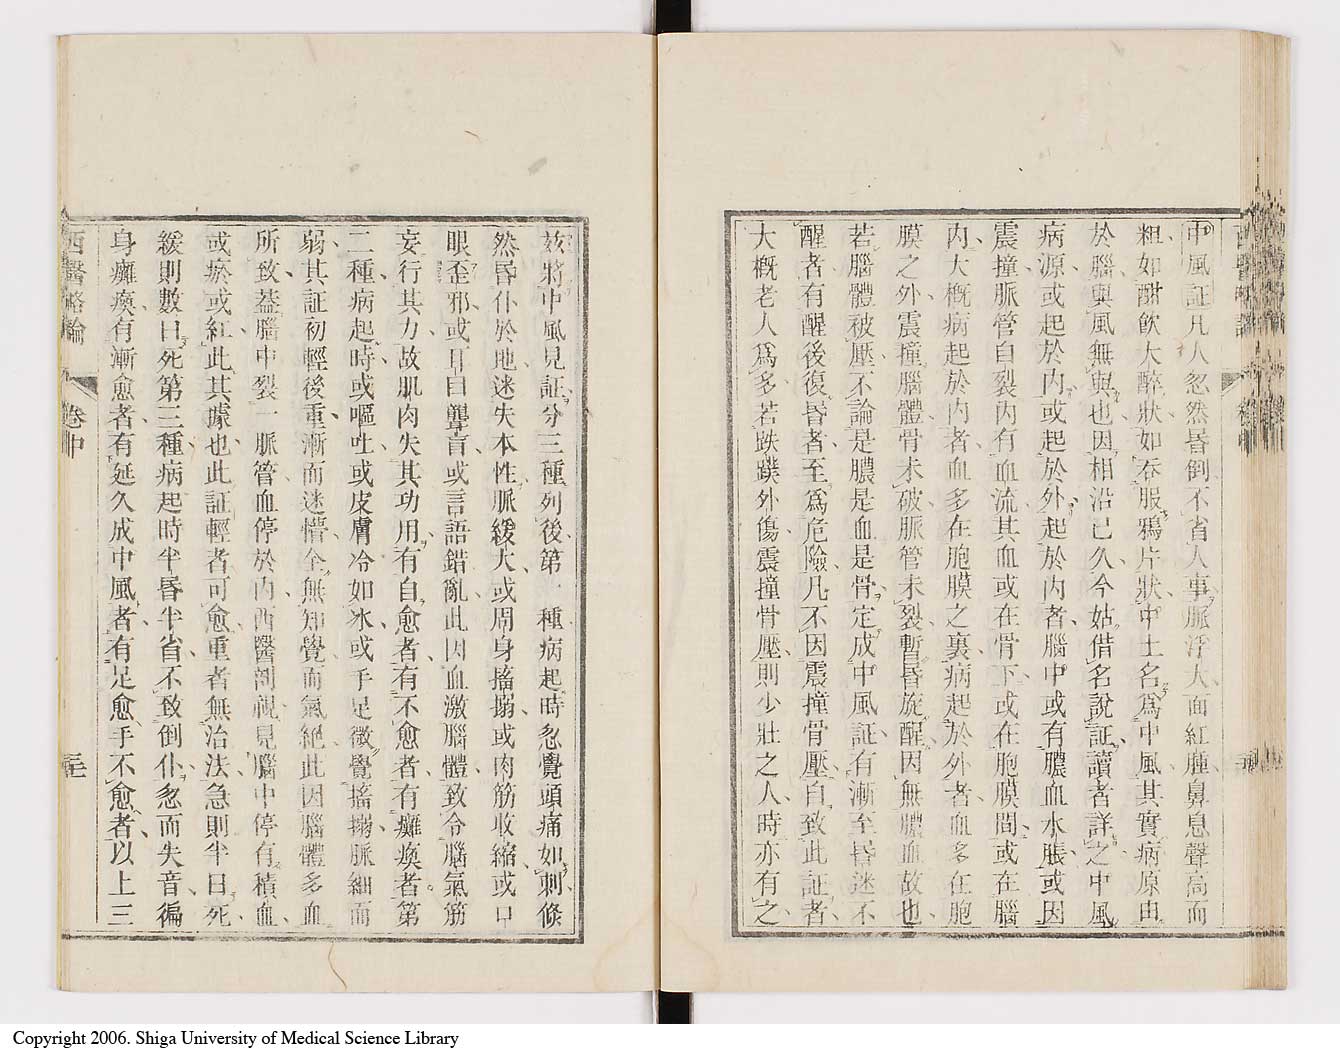 中風証凡人忽然昏倒不省人事脈浮大面紅腫鼻息聲高而
粗如酣飲大醉狀如吞服鴉片狀中土名爲中風其實病原由
於腦與風無與也因相沿已久今姑借名說証讀者詳之中風
病源或起於內或起於外起於內者腦中或有膿血水脹或因
震撞脈管自裂內有血流其血或在骨下或在胞膜間或在腦
內大概病起於內者血多在胞膜之裏病起於外者血多在胞
膜之外震撞腦體骨未破脈管未裂暫昏旋醒因無膿血故也
若腦體被壓不論是膿是血是骨定成中風証有漸至昏迷不
醒者有醒後復昏者至爲危險凡不因震撞骨壓自致此証者
大概老人爲多若跌蹼外傷震撞骨壓則少壯之人時亦有之
茲將中風見証分三種列後第一種病起時忽覺頭痛如刺條
然昏仆於地迷失本性脈緩大或周身搐搦或肉筋收縮或口
眼歪邪或耳目聾盲或言語錯亂此因血激腦體致令腦氣筋
妄行其力故肌肉失其功用有自愈者有不愈者有癱瘓者第
二種病起時或嘔吐或皮膚冷如冰或手足微覺搐搦脈細而
弱其証初輕後重漸而迷懵全無知覺而氣絕此因腦體多血
所致葢腦中裂一脈管血停於內西醫剖視見腦中停有積血
或瘀或紅此其據也此証輕者可愈重者無治法急則半日死
緩則數日死第三種病起時半昏半省不致倒仆忽而失音徧
身癱瘓有漸愈者有延久成中風者有足愈手不愈者以上三
西醫略論 卷中
Copyright 2006. Shiga University of Medical Science Library